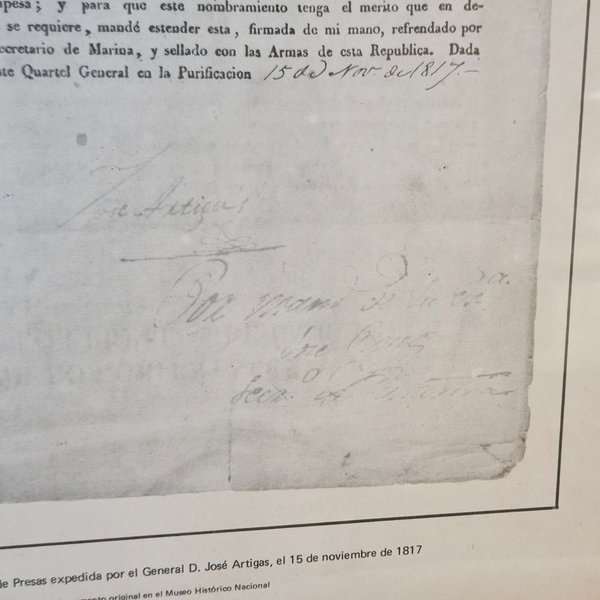 apesa; y para que este nombramiento tenga el merito que en de-
se requiere, mandé estender esta, firmada de mi mano, refrendado por
ecretario de Marina, y sellado con las Armas de esta Republica. Dada
ste Quartel General en la Purificacion 15 de Nov. de 1817.—
Jose Artigas
Por mand.º de
Secr.º de Marina
de Presas expedida por el General D. José Artigas, el 15 de noviembre de 1817
mento original en el Museo Histórico Nacional